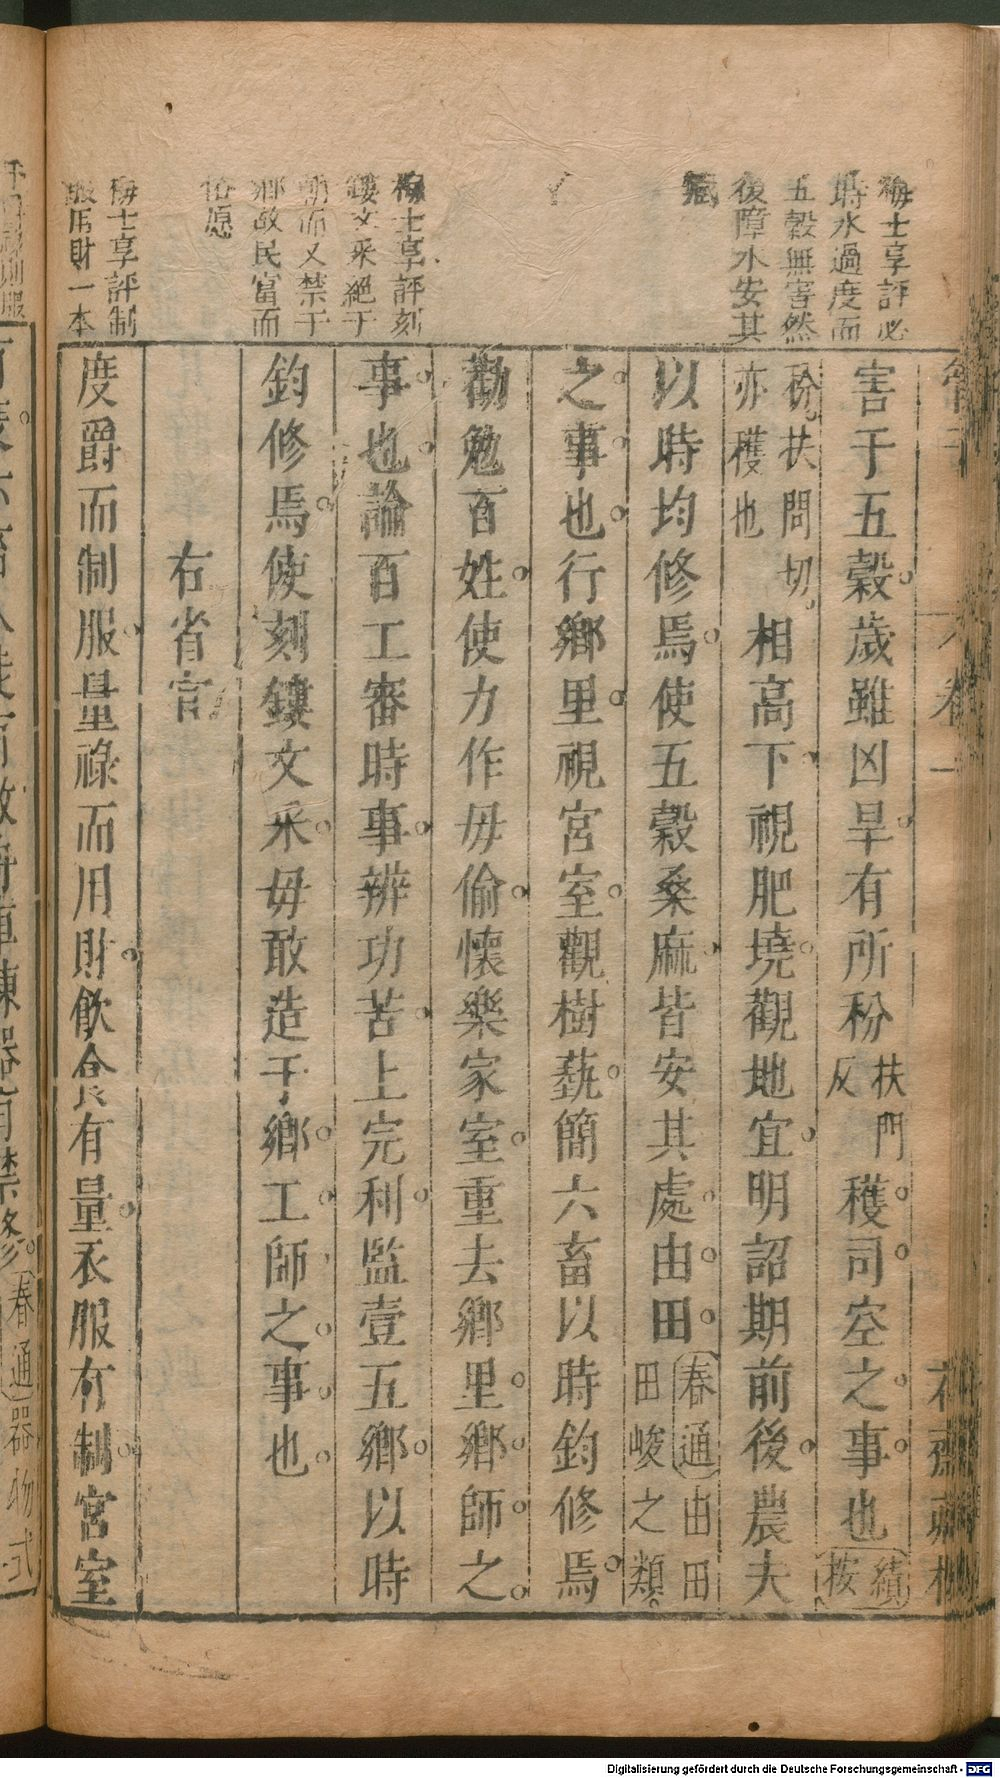 管子
卷一
梅士享評必
時水過度而
五穀無害然
後障水安其
藏
梅士享評刻
鏤文采絕于
朝而又禁于
鄉故民富而
俗愿
梅士享評制
服用財一本
害于五穀歲雖凶旱有所秎扶門反穫司空之事也續按
秎扶問切亦穫也相高下視肥墝觀地宜明詔期前後農夫
以時均修焉使五穀桑麻皆安其處由田之事也春通由田田峻之類
之事也行鄉里視宮室觀樹蓺簡六畜以時鈞修焉
勸勉百姓使力作毋偷懷樂家室重去鄉里鄉師之
事也論百工審時事辨功苦上完利監壹五鄉以時
鈞修焉使刻鏤文采毋敢造于鄉工師之事也
右省官
度爵而制服量祿而用財飲食有量衣服有制宮室
春通器物式
Digitalisierung gefördert durch die Deutsche Forschungsgemeinschaft - DFG